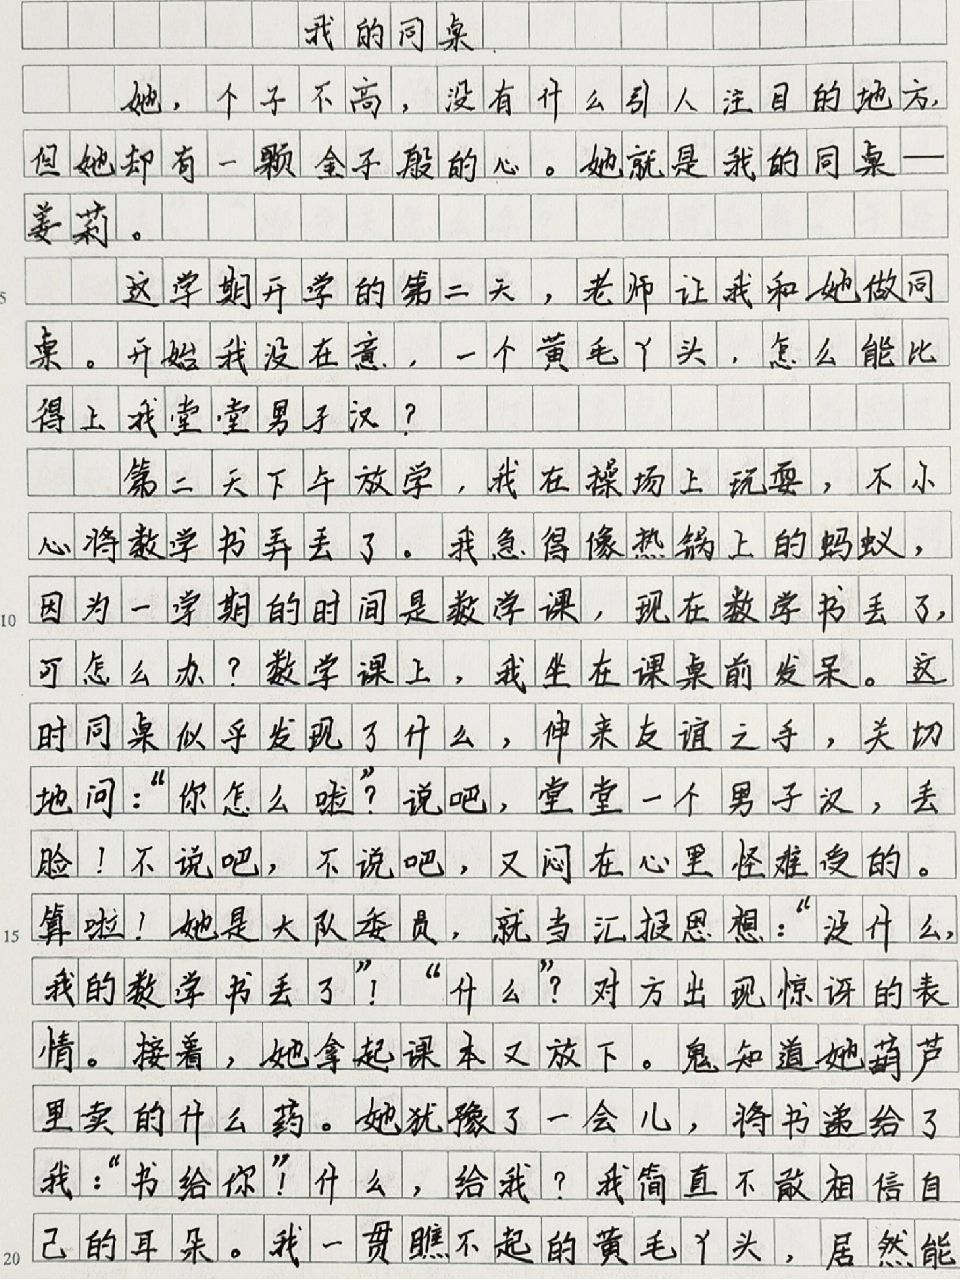 我的同桌
她，个子不高，没有什么引人注目的地方，
但她却有一颗金子般的心。她就是我的同桌——
姜莉。
5 这学期开学的第二天，老师让我和她做同
桌。开始我没在意，一个黄毛丫头，怎么能比
得上我堂堂男子汉？
第二天下午放学，我在操场上玩耍，不小
心将数学书弄丢了。我急得像热锅上的蚂蚁，
10 因为一学期的时间是数学课，现在数学书丢了，
可怎么办？数学课上，我坐在课桌前发呆。这
时同桌似乎发现了什么，伸来友谊之手，关切
地问：“你怎么啦”？说吧，堂堂一个男子汉，丢
脸！不说吧，不说吧，又闷在心里怪难受的。
15 算啦！她是大队委员，就当汇报思想：“没什么，
我的数学书丢了”！“什么”？对方出现惊讶的表
情。接着，她拿起课本又放下。鬼知道她葫芦
里卖的什么药。她犹豫了一会儿，将书递给了
我：“书给你”！什么，给我？我简直不敢相信自
20 己的耳朵。我一贯瞧不起的黄毛丫头，居然能